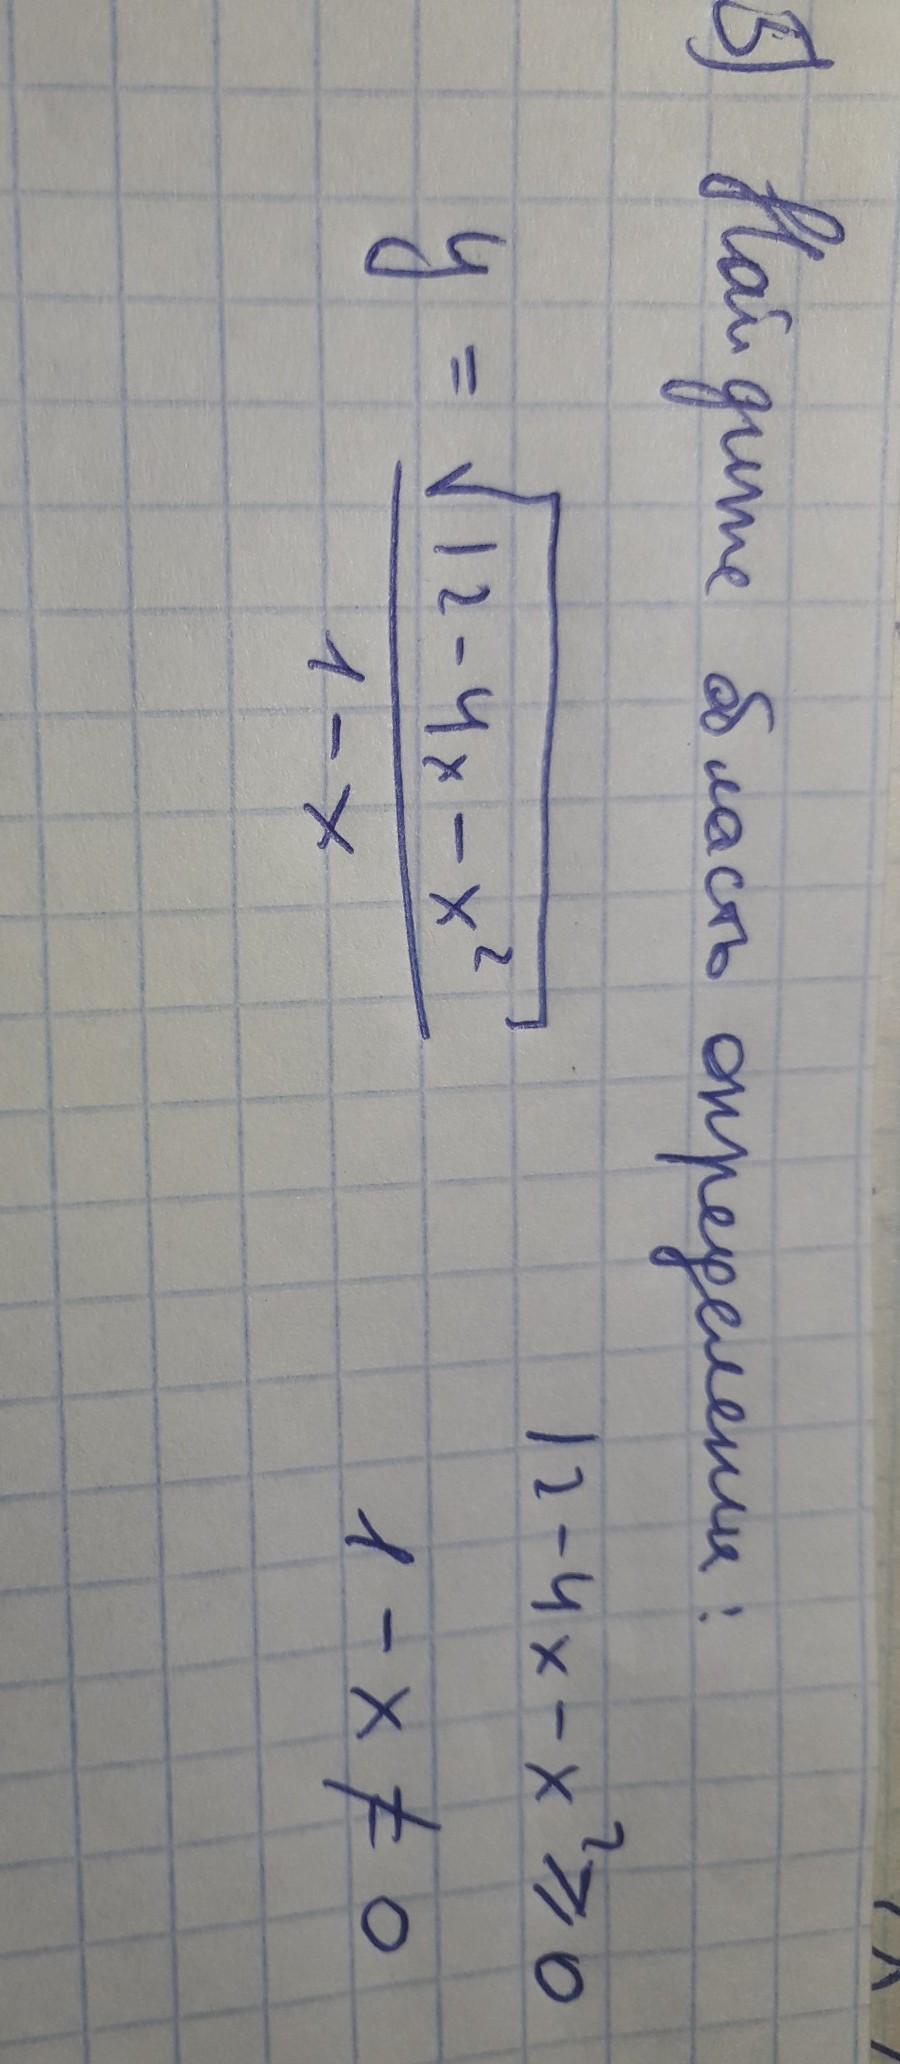 3) Найдите область определения:
y = √(12-4x-x²) / (1-x)
12-4x-x² ≥ 0
1-x ≠ 0